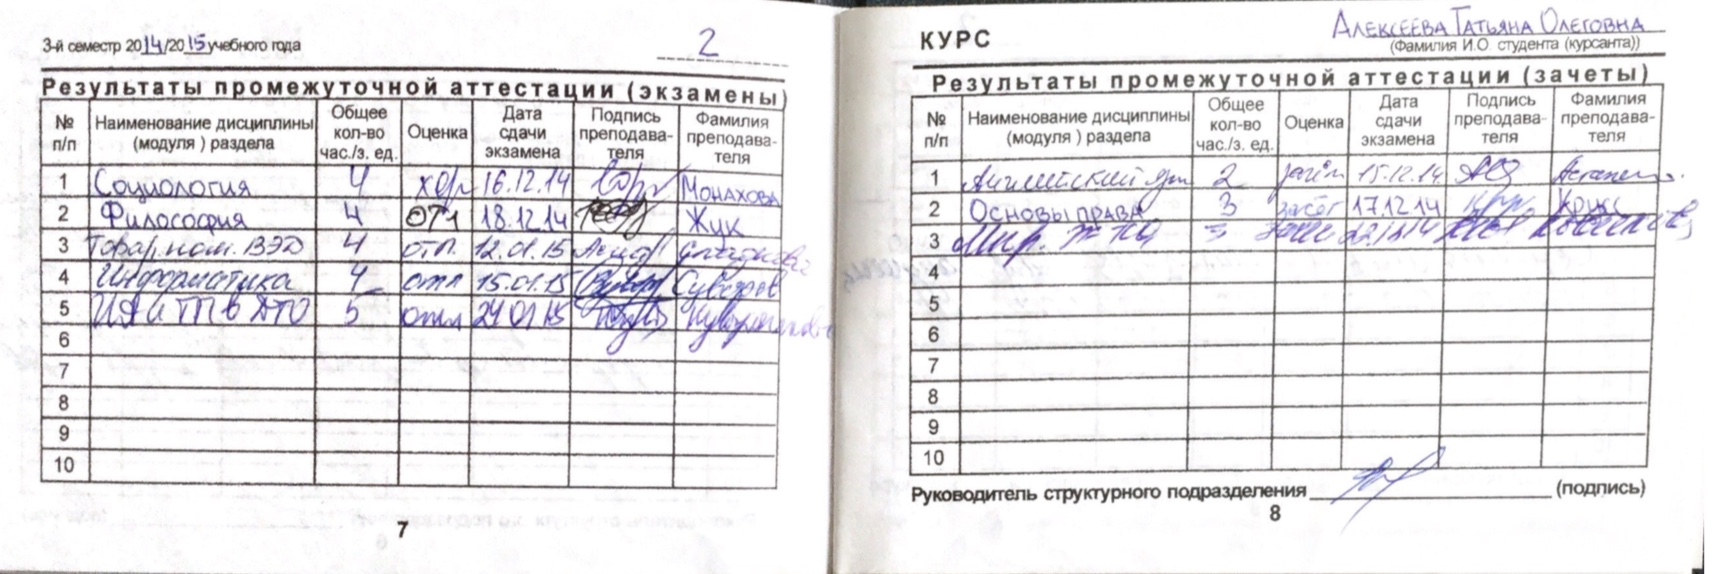 3-й семестр 2014/2015 учебного года
2
Результаты промежуточной аттестации (экзамены)
№ п/п Наименование дисциплины (модуля ) раздела Общее кол-во час./з. ед. Оценка Дата сдачи экзамена Подпись преподава-теля Фамилия преподава-теля
1 Социология 4 хор 16.12.14 Монахова
2 Философия 4 отл 18.12.14 Жук
3 Товар. ном. ВЭД 4 отл. 12.01.15
4 Информатика 4 отл 15.01.15 Суворов
5 5 отл 15
6
7
8
9
10
7
КУРС
Алексеева Татьяна Олеговна
(Фамилия И.О. студента (курсанта))
Результаты промежуточной аттестации (зачеты)
№ п/п Наименование дисциплины (модуля ) раздела Общее кол-во час./з. ед. Оценка Дата сдачи экзамена Подпись преподава-теля Фамилия преподава-теля
1 Английский яз 2 зачёт 15.12.14
2 Основы права 3 зачёт 17.12.14
3 3
4
5
6
7
8
9
10
Руководитель структурного подразделения (подпись)
8